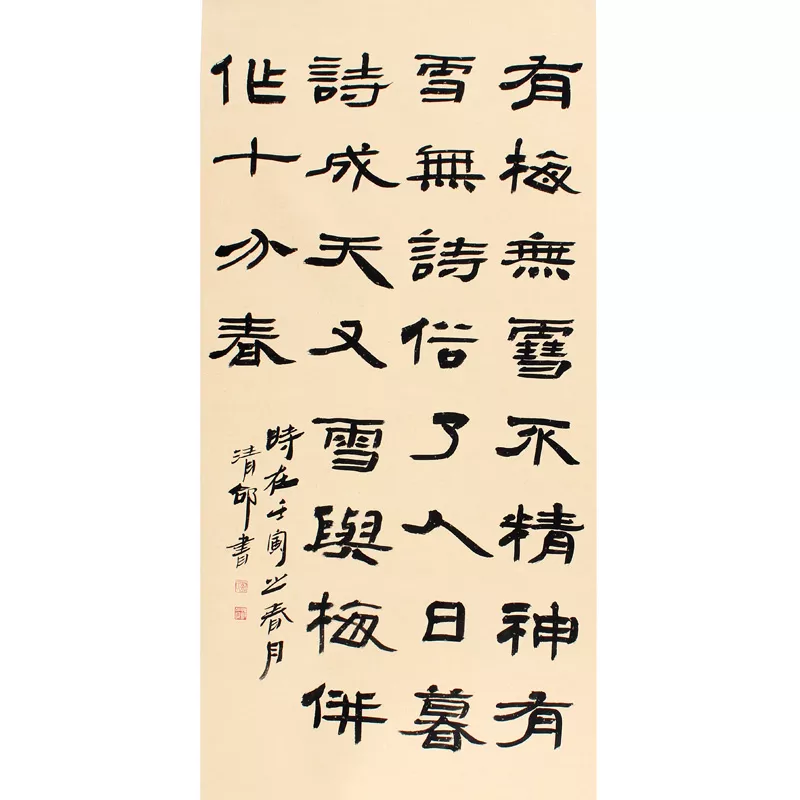 有梅無雪不精神有
雪無詩俗了人日暮
詩成天又雪與梅併
作十分春
時在壬寅之春月
清邰書